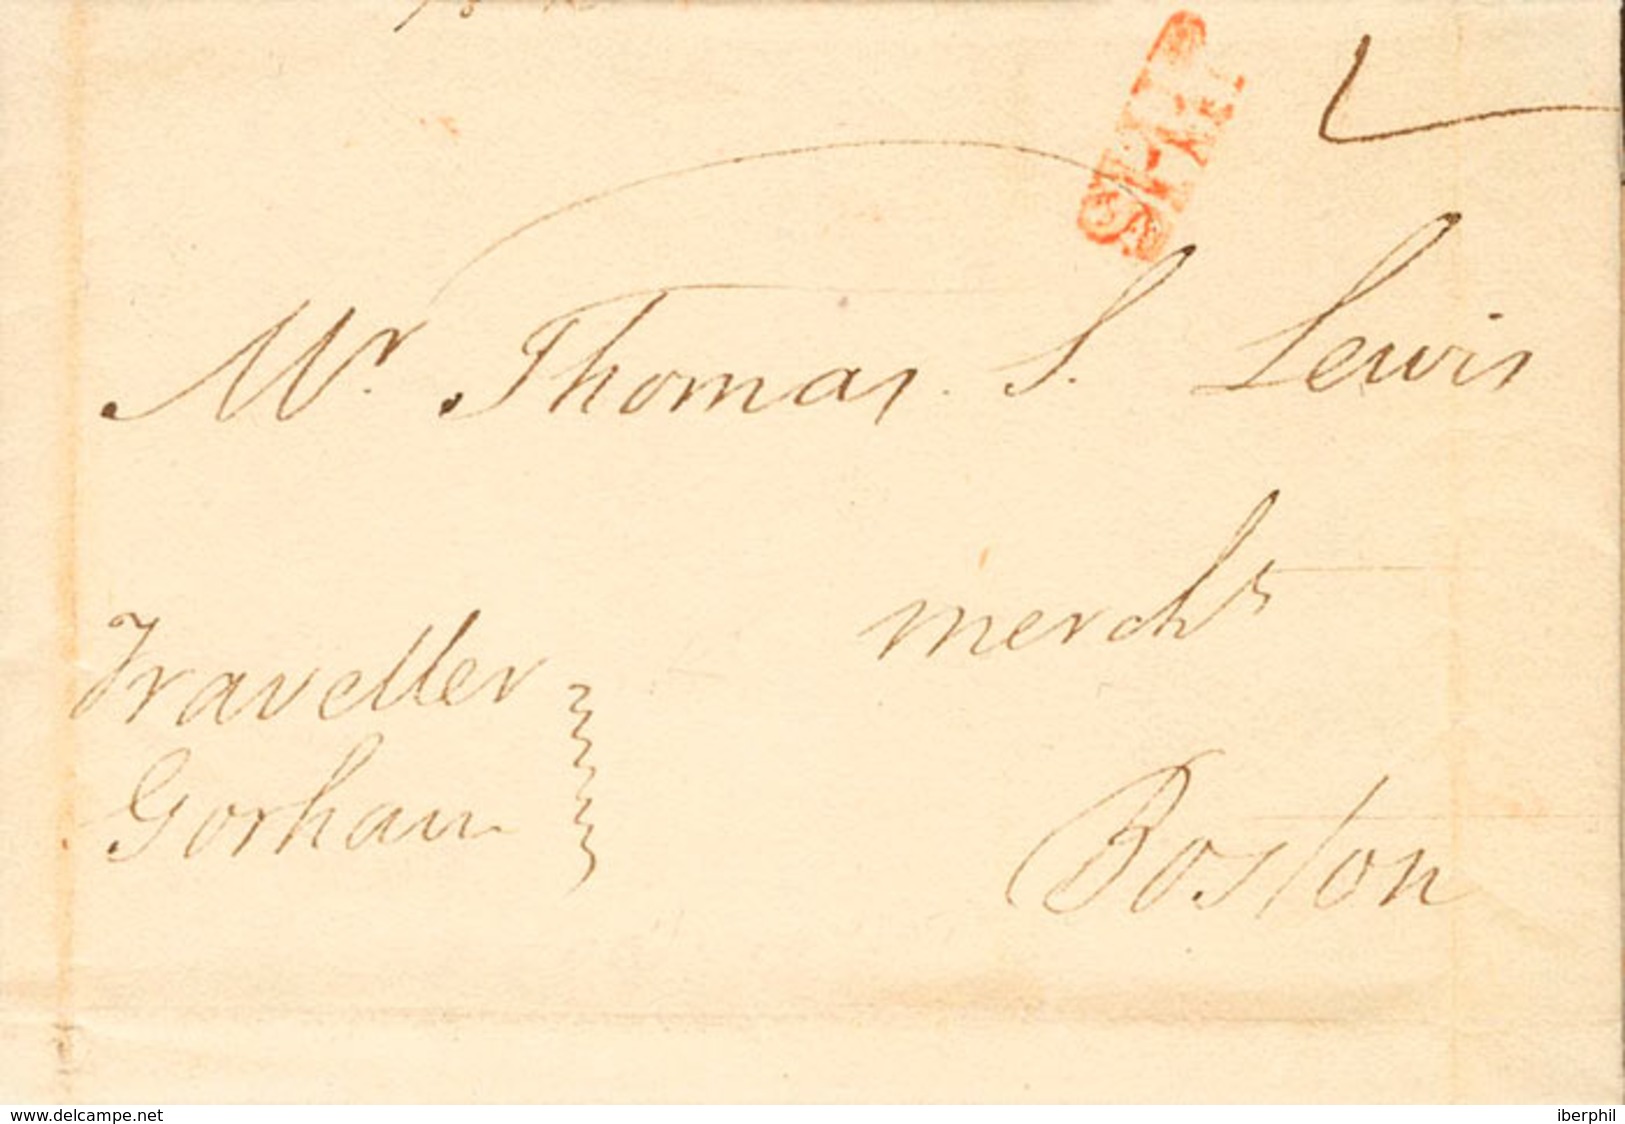 SHIP
Mr. Thomas. S. Lewis
mercht
Traveller
Gorham
Boston
www.delcampe.net
iberphil